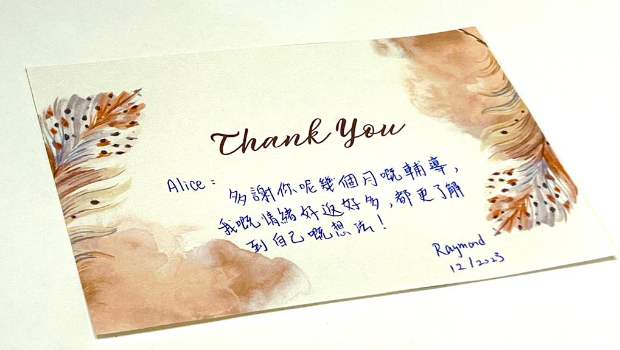 Thank You
Alice：
多謝你呢幾個月嘅輔導，
我嘅情緒好返好多，都更了解
到自己嘅想法！
Raymond
12/2023